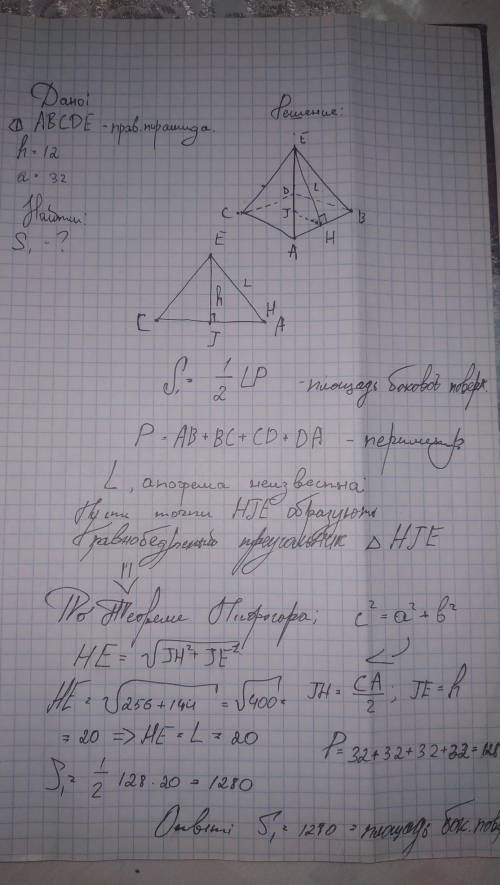 Дано:
ABCDE - прав. пирамида.
Решение:
h = 12
a = 32
Найти:
S₁ - ?
E
D
L
C
J
B
A
H
E
h
L
C
J
H
A
S₁ = 1/2 LP - площадь боковой поверх.
P = AB + BC + CD + DA - периметр
L, апофема неизвестна;
Пусть точки HJE образуют
треугольник △ HJE
⇓
По Теореме Пифагора; c² = a² + b²
HE = √JH² + JE²
HE = √256 + 144 = √400 =
JH = CA/2; JE = h
= 20 => HE = L = 20
P = 32+32+32+32 = 128
S₁ = 1/2 128 · 20 = 1280
Ответ: S₁ = 1280 = площадь бок. пов